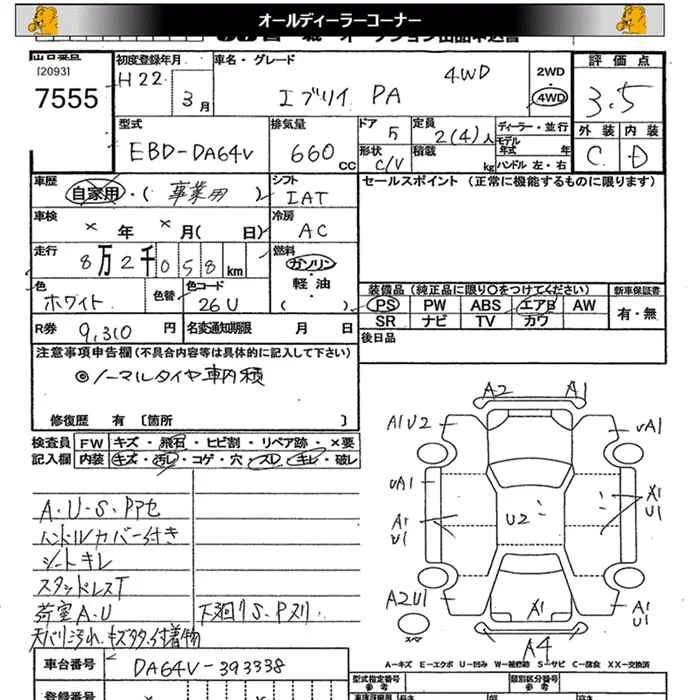 オールディーラーコーナー
[2093]
7555
初度登録年月
H22
3月
車名・グレード
エブリイ PA
4WD
2WD
4WD
評価点
3.5
外装 内装
C D
型式
EBD-DA64V
排気量
660 CC
ドア
5
定員
2(4)人
形状
C/V
積載
kg
ディーラー・並行
モデル年式 年
ハンドル 左・右
車歴
自家用・(事業用)
シフト
IAT
車検
× 年 × 月( 日)
冷房
AC
走行
8万2千058km
燃料
ガソリン
軽油
( )
色
ホワイト
色替
色コード
26U
R券
9,310 円
名変通知期限 月 日
セールスポイント (正常に機能するものに限ります)
装備品(純正品に限り○をつけてください)
PS PW ABS エアB AW
SR ナビ TV カワ
新車保証書
有・無
後日品
注意事項申告欄(不具合内容等は具体的に記入して下さい)
◎ノーマルタイヤ車内積
修復歴 有〔箇所 〕
検査員 FW キズ・飛石・ヒビ割・リペア跡・×要
記入欄 内装 キズ・汚レ・コゲ・穴・スレ・キレ・破レ
A・U・S・Pアセ
ハンドルカバー付き
シートキレ
スタッドレスT
荷室A・U
下廻りS、Pスリ
天バリ汚れ、キズ多タ、付着物
A2 A1
A1U2
υA1
υA1
A1
U1
U2
X1
U1
A2U1
X1
A1
U1
スペア
A4
A-キズ E-エクボ U-凹み W-補修跡 S-サビ C-腐食 XX-交換済
車台番号
DA64V-393338
登録番号
型式指定番号
参考
類別区分番号
参考